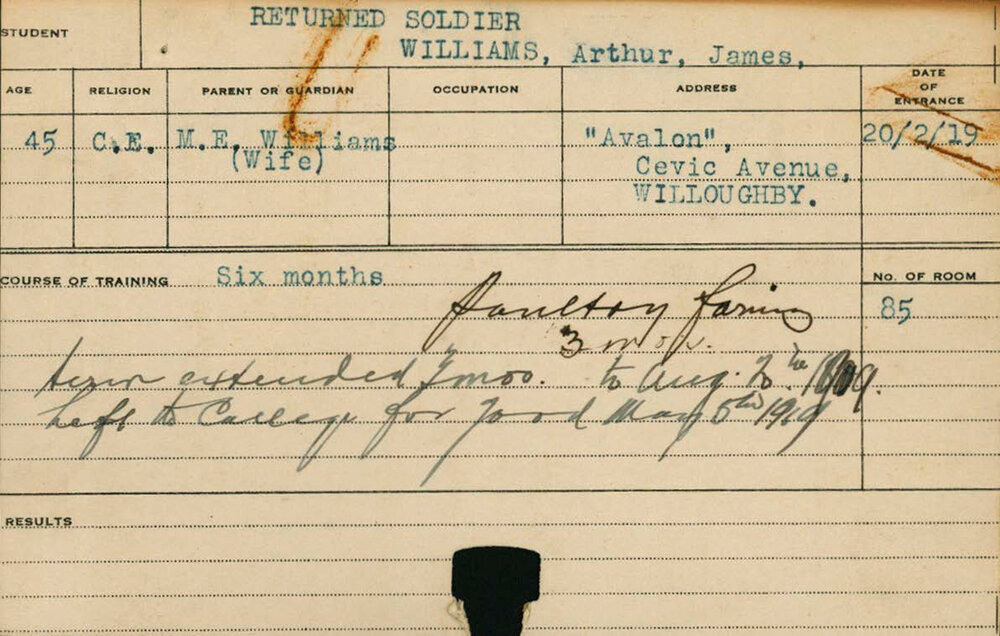 STUDENT
RETURNED SOLDIER
WILLIAMS, Arthur, James,
AGE
RELIGION
PARENT OR GUARDIAN
OCCUPATION
ADDRESS
DATE OF ENTRANCE
45
C.E.
M.E. Williams
(Wife)
"Avalon",
Cevic Avenue,
WILLOUGHBY.
20/2/19
COURSE OF TRAINING
Six months
Poultry farming
3 mos.
No. OF ROOM
85
term extended mos. to Aug. 1919.
Left College for good May 5th 1919
RESULTS